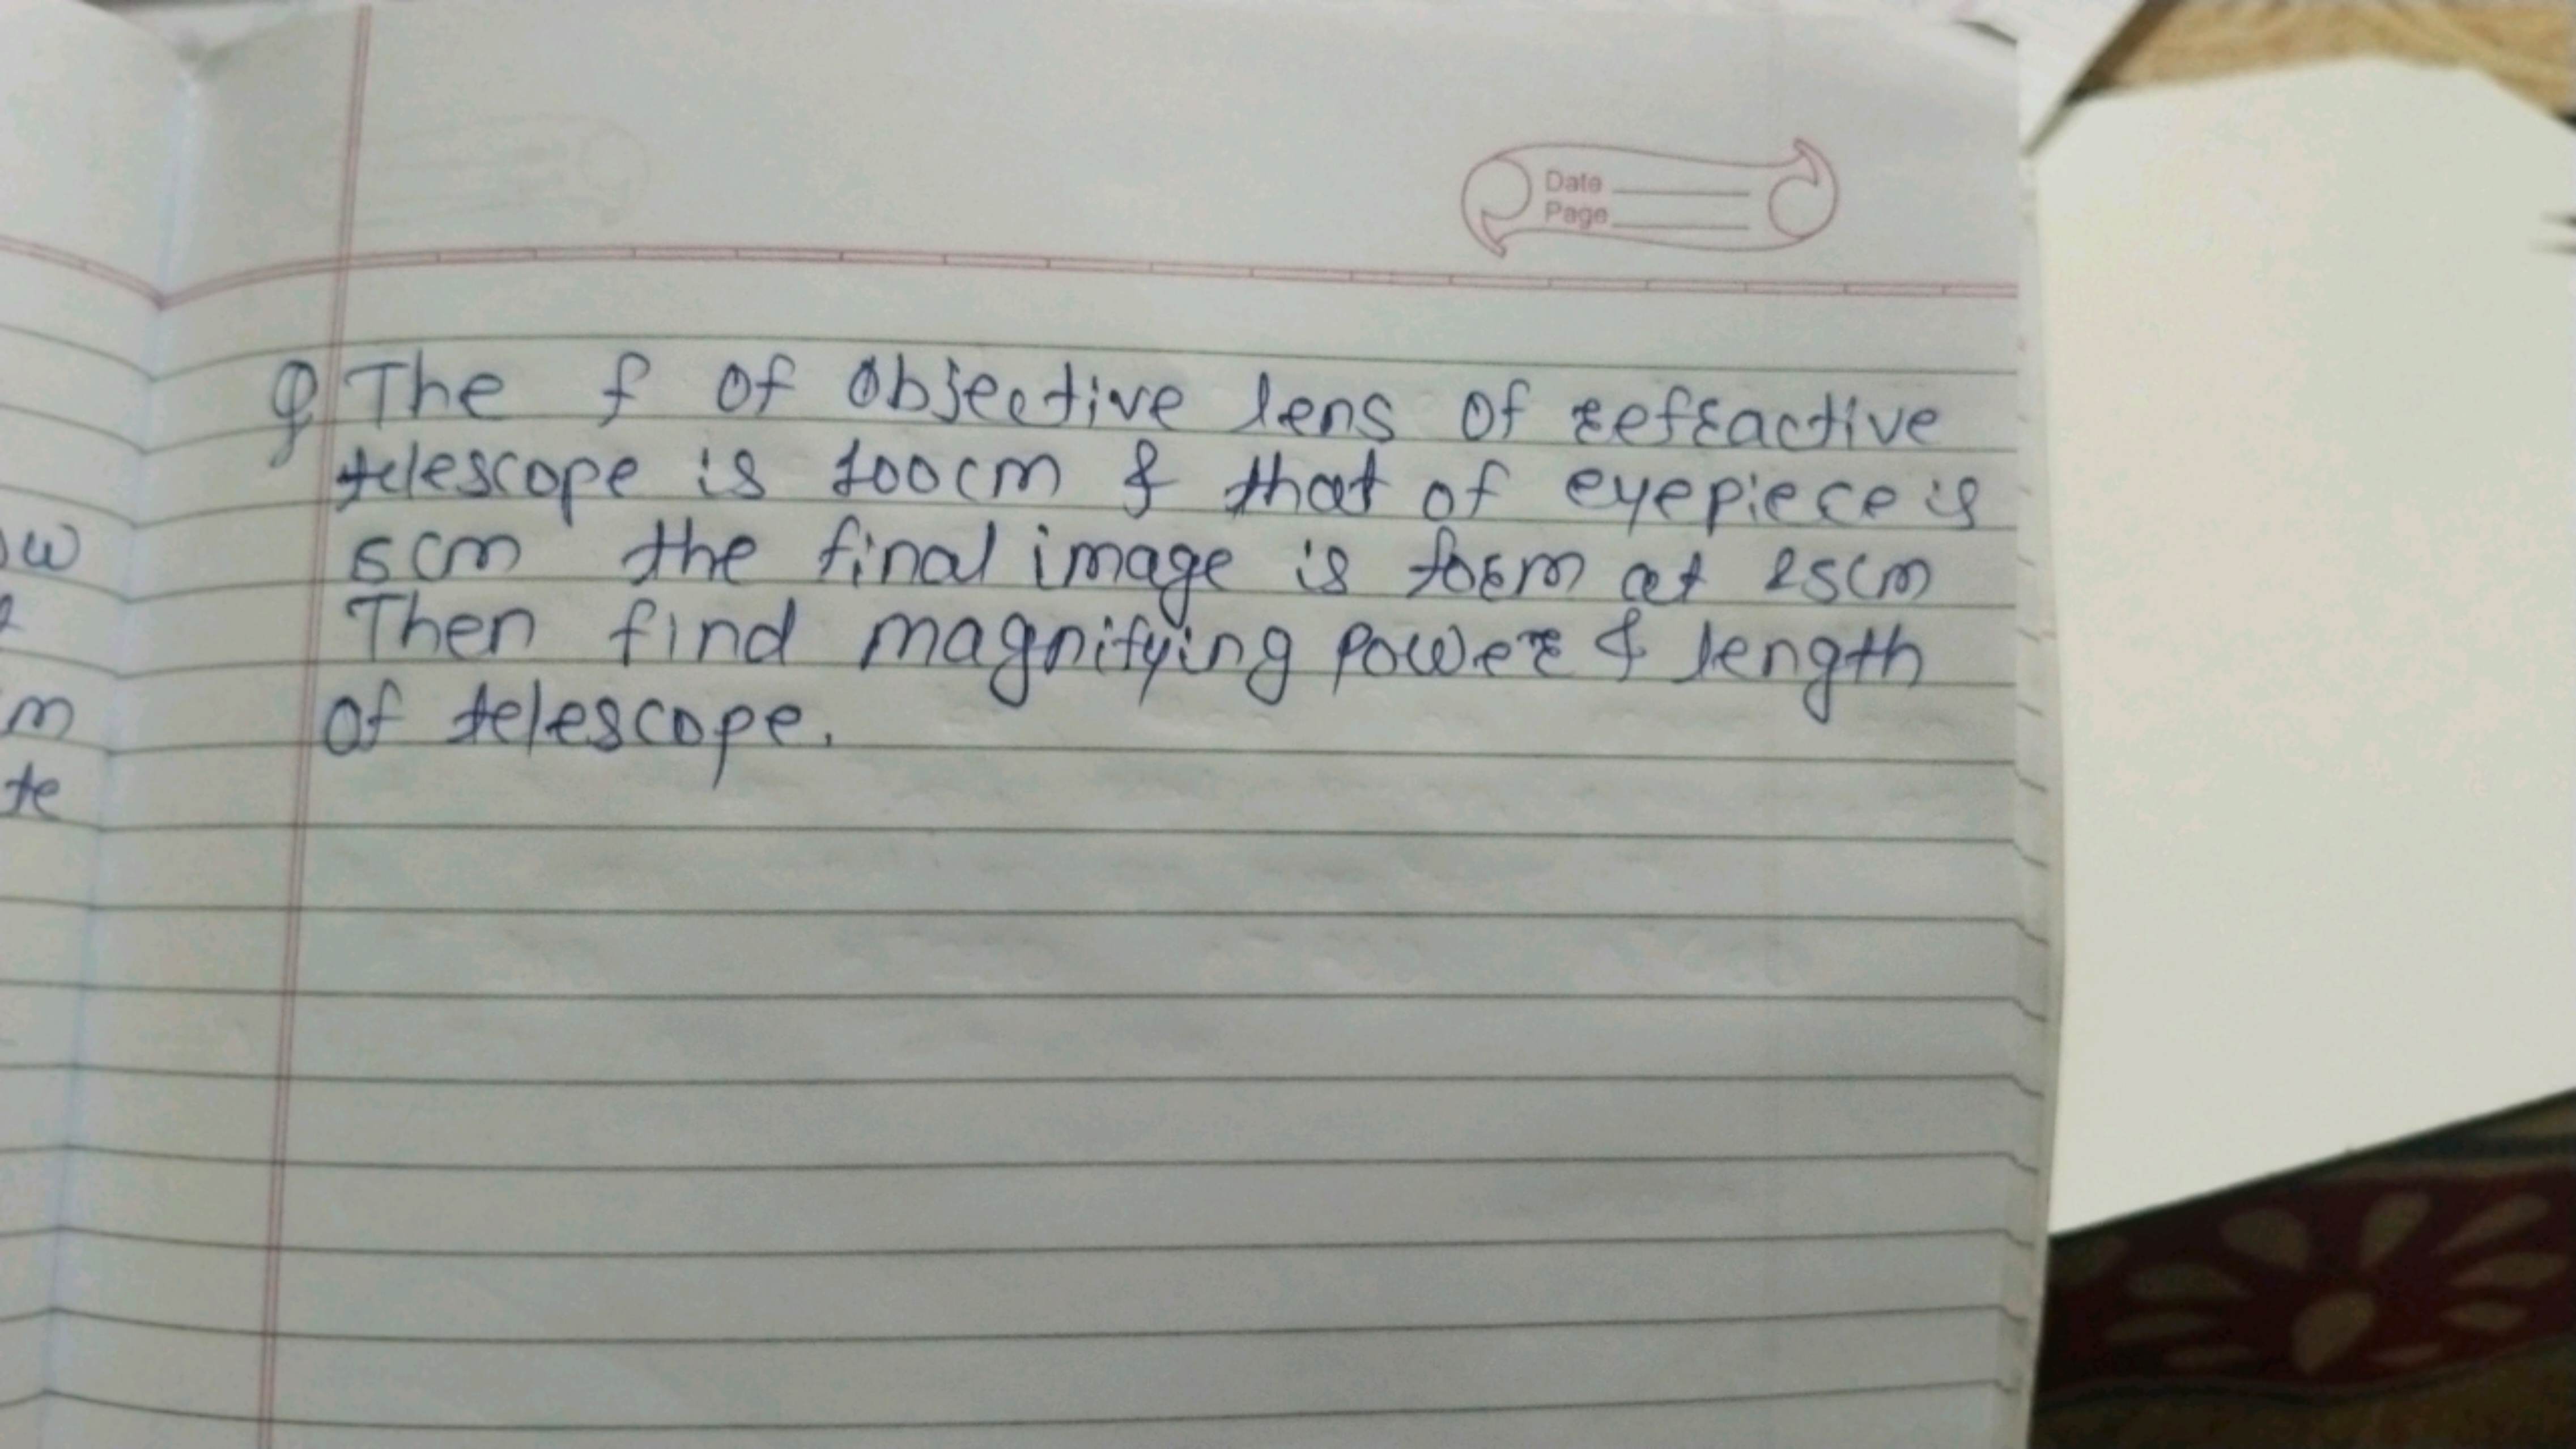 Date
Page
Q The f of Objective lens of refractive
telescope is 100cm & that of eyepiece is
5cm the final image is form at 25cm
Then find magnifying power & length
of telescope.
ow
m
te